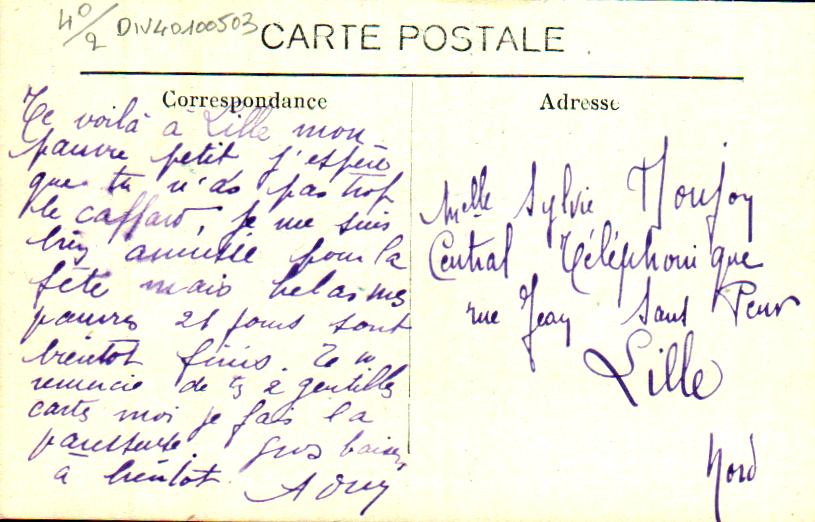 40/2 DIV40100503
CARTE POSTALE
Correspondance
Te voilà à Lille mon
pauvre petit j'espère
que tu n'as pas trop
le caffard, je me suis
bien amusée pour la
fête mais helas mes
pauvres 21 jours sont
bientot finis. Je te
remercie de tes 2 gentilles
cartes moi je fais la
paresseuse. Gros baisers
à bientot
Adresse
Melle Sylvie Monjoy
Central Téléphonique
rue Jean Sans Peur
Lille
Nord